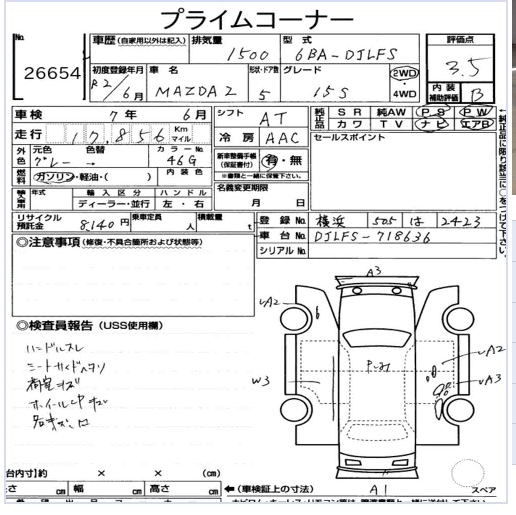 プライムコーナー
No.
26654
車歴 (自家用以外は記入)
排気量
1500
型式
6BA-DJLFS
評価点
3.5
初度登録年月
R2/6月
車名
MAZDA2
形状・ドア数
5
グレード
15S
2WD
・4WD
内装補助評価
B
車検
7年 6月
シフト
AT
純正品
SR 純AW PS PW
カワ TV ナビ エアB
走行
17,856 Km マイル
冷房
AAC
セールスポイント
外色
元色 色替
グレー →
カラーNo.
46G
新車整備手帳(保証書付)
有・無
※書類と一緒に保管下さい。
燃料
ガソリン・軽油・( )
内装色
名義変更期限
月 日
輸入車用
年式
輸入区分
ディーラー・並行
ハンドル
左・右
リサイクル預託金
8140円
乗車定員
人
積載量
t
登録No.
横浜 505 は 2423
車台No.
DJLFS-718636
シリアルNo.
◎注意事項 (修復・不具合箇所および状態等)
A3
A2
◎検査員報告 (USS使用欄)
ハンドルスレ
A2
A3
W3
(cm)
幅 cm
高さ cm
←(車検証上の寸法)
A1
スペア